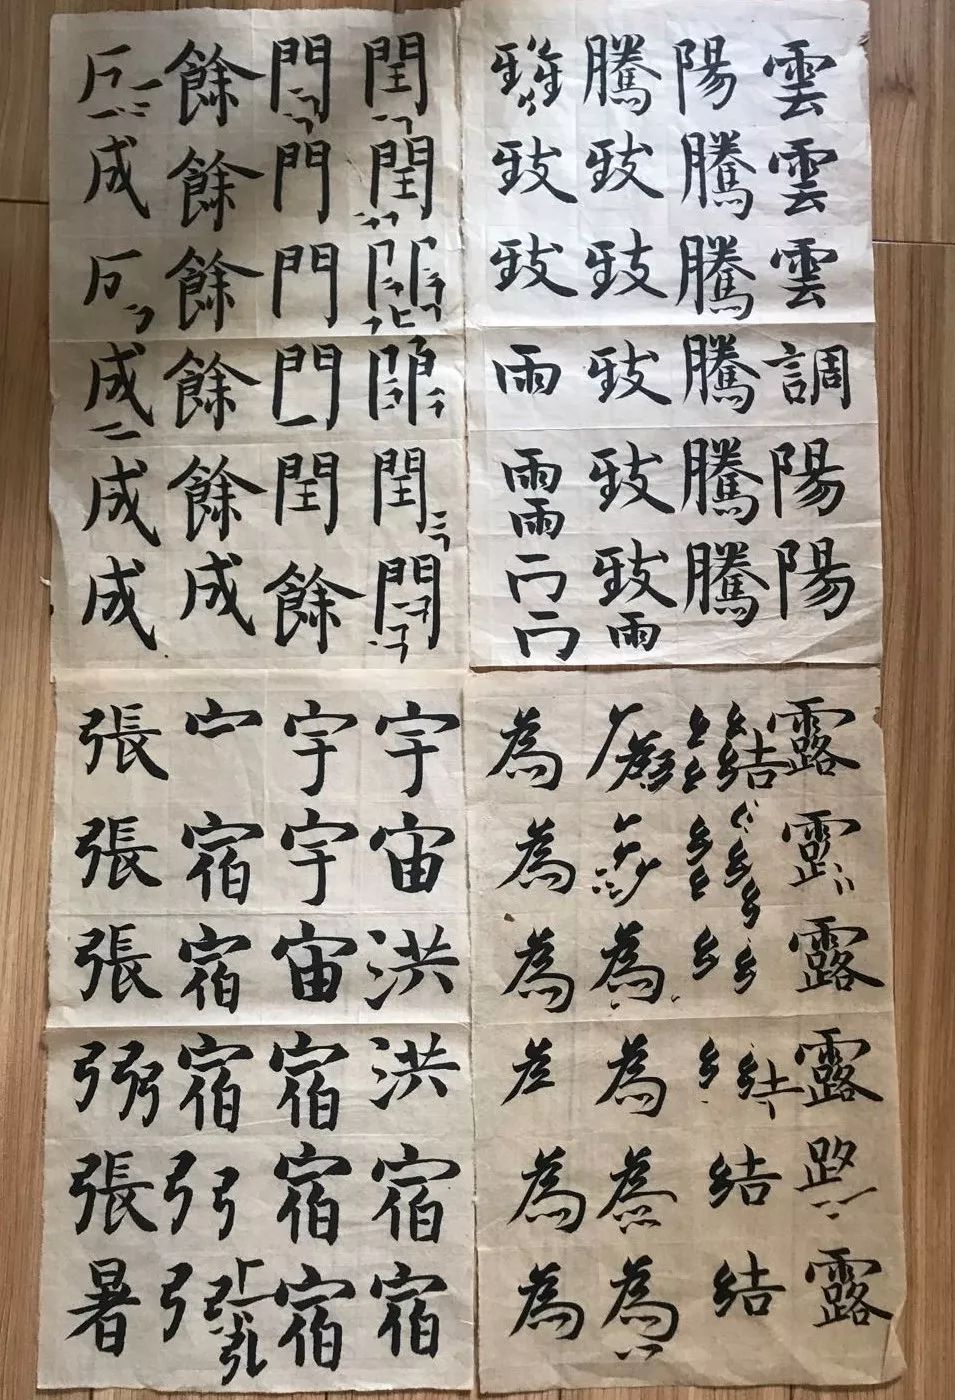 雲雲雲調陽陽
陽騰騰騰騰騰
騰致致致致致雨
致致雨雨雨
閏閏閏門
門門門門閏餘
餘餘餘餘餘成
成成成成
露露露露
結結結
為為為為
為為為為為
宇宙洪洪宿宿
宇宇宙宿宿宿
宿宿宿
張張張張暑